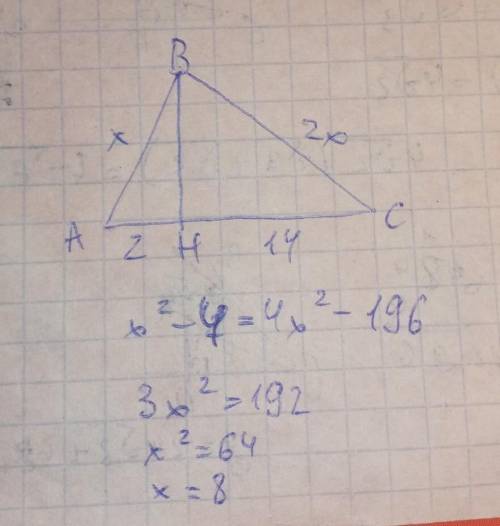 B
x 2x
A 2 H 14 C
x² - 4 = 4x² - 196
3x² = 192
x² = 64
x = 8